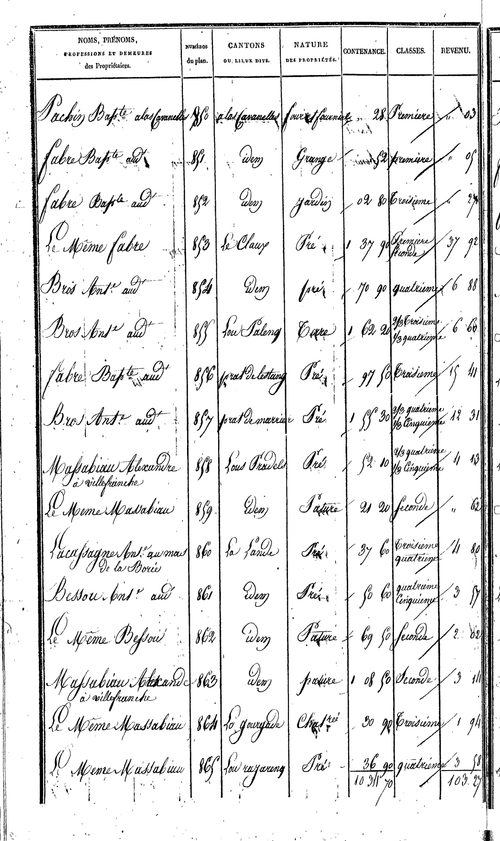 NOMS, PRÉNOMS, PROFESSIONS ET DEMEURES des Propriétaires. NUMÉROS du plan. CANTONS OU LIEUX DITS. NATURE DES PROPRIÉTÉS. CONTENANCE. CLASSES. REVENU.
Pachin Bapte a las Cavanelles 850 a las Cavanelles four et fourniere " 28 Premiere " 03
fabre Bapte audt 851 idem Grange " 52 premiere " 05
fabre Bapte audt 852 idem jardin " 02 80 Troisieme " 27
Le Même fabre 853 Le Claux Pré 1 37 90 Premiere Seconde 37 92
Bros Antne audt 854 idem pré " 70 90 quatrieme 6 88
Bros Antne audt 855 Lou Paleng Terre 1 62 20 2/3 Troisieme 1/3 quatrieme 6 60
fabre Bapte audt 856 prat de lestang Pré " 97 50 Troisieme 15 41
Bros Antne audt 857 prat de marriue Pré 1 55 30 2/3 quatrieme 1/3 Cinquieme 12 31
Massabiau Alexandre 858 Lous Pradels Pré 52 10 1/3 quatrieme 2/3 Cinquieme 4 13
à villefranche
Le Meme Massabiau 859 idem Pature 21 20 Seconde " 62
Lacassagne Antne au mas 860 La Lande Pré 37 60 Troisieme quatrieme 4 80
de la Borie
Bessou Antne audt 861 idem Pré 50 60 quatrieme Cinquieme 3 57
Le Même Bessou 862 idem Pature 69 50 Seconde 2 02
Massabiau Alexandre 863 idem pature 1 08 50 Seconde 3 14
à villefranche
Le Même Massabiau 864 La gourgade 30 90 Troisieme 1 94
Le Meme Massabiau 865 Lou razareng Pré 36 90 quatrieme 3 58
103 27